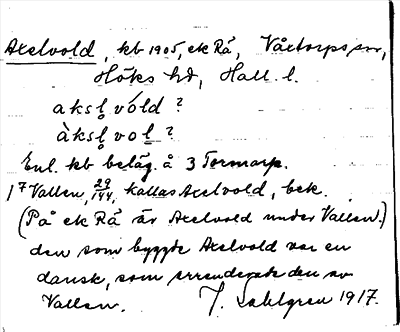 Axelvold, kb 1905, ek Rå, Våxtorps sn,
Höks hd, Hall. l.
aksl̥vóld ?
àksl̥vol ?
Enl. kb beläg. å 3 Tormarp.
1⁷ Vallen, 29/144, kallas Axelvold, bek.
(På ek Rå är Axelvold under Vallen.)
den som byggde Axelvold var en
dansk, som arrenderat den av
Vallen. J. Sahlgren 1917.